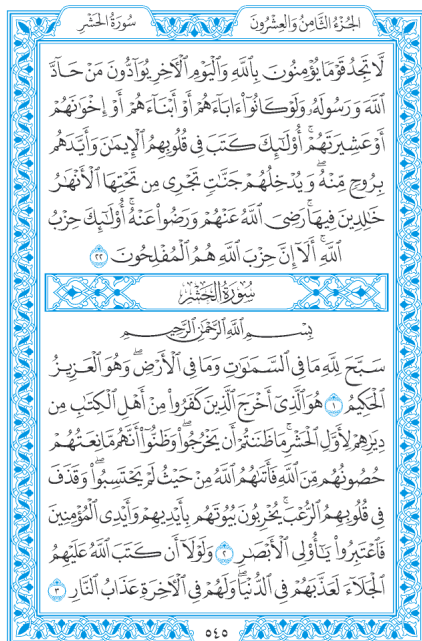 الجُزْءُ الثَّامِنُ وَالعِشْرُونَ
سُورَةُ الحَشْرِ
لَّا تَجِدُ قَوْمًا يُؤْمِنُونَ بِٱللَّهِ وَٱلْيَوْمِ ٱلْأَخِرِ يُوَآدُّونَ مَنْ حَآدَّ
ٱللَّهَ وَرَسُولَهُۥ وَلَوْ كَانُوٓا۟ ءَابَآءَهُمْ أَوْ أَبْنَآءَهُمْ أَوْ إِخْوَٰنَهُمْ
أَوْ عَشِيرَتَهُمْ ۚ أُو۟لَٰٓئِكَ كَتَبَ فِى قُلُوبِهِمُ ٱلْإِيمَٰنَ وَأَيَّدَهُم
بِرُوحٍ مِّنْهُ ۖ وَيُدْخِلُهُمْ جَنَّٰتٍ تَجْرِى مِن تَحْتِهَا ٱلْأَنْهَٰرُ
خَٰلِدِينَ فِيهَا ۚ رَضِىَ ٱللَّهُ عَنْهُمْ وَرَضُوا۟ عَنْهُ ۚ أُو۟لَٰٓئِكَ حِزْبُ
ٱللَّهِ ۚ أَلَآ إِنَّ حِزْبَ ٱللَّهِ هُمُ ٱلْمُفْلِحُونَ ٢٢
سُورَةُ الحَشْرِ
بِسْمِ ٱللَّهِ ٱلرَّحْمَٰنِ ٱلرَّحِيمِ
سَبَّحَ لِلَّهِ مَا فِى ٱلسَّمَٰوَٰتِ وَمَا فِى ٱلْأَرْضِ ۖ وَهُوَ ٱلْعَزِيزُ
ٱلْحَكِيمُ ١ هُوَ ٱلَّذِىٓ أَخْرَجَ ٱلَّذِينَ كَفَرُوا۟ مِنْ أَهْلِ ٱلْكِتَٰبِ مِن
دِيَٰرِهِمْ لِأَوَّلِ ٱلْحَشْرِ ۚ مَا ظَنَنتُمْ أَن يَخْرُجُوا۟ ۖ وَظَنُّوٓا۟ أَنَّهُم مَّانِعَتُهُمْ
حُصُونُهُم مِّنَ ٱللَّهِ فَأَتَىٰهُمُ ٱللَّهُ مِنْ حَيْثُ لَمْ يَحْتَسِبُوا۟ ۖ وَقَذَفَ
فِى قُلُوبِهِمُ ٱلرُّعْبَ ۚ يُخْرِبُونَ بُيُوتَهُم بِأَيْدِيهِمْ وَأَيْدِى ٱلْمُؤْمِنِينَ
فَٱعْتَبِرُوا۟ يَٰٓأُو۟لِى ٱلْأَبْصَٰرِ ٢ وَلَوْلَآ أَن كَتَبَ ٱللَّهُ عَلَيْهِمُ
ٱلْجَلَآءَ لَعَذَّبَهُمْ فِى ٱلدُّنْيَا ۖ وَلَهُمْ فِى ٱلْأَخِرَةِ عَذَابُ ٱلنَّارِ ٣
٥٤٥